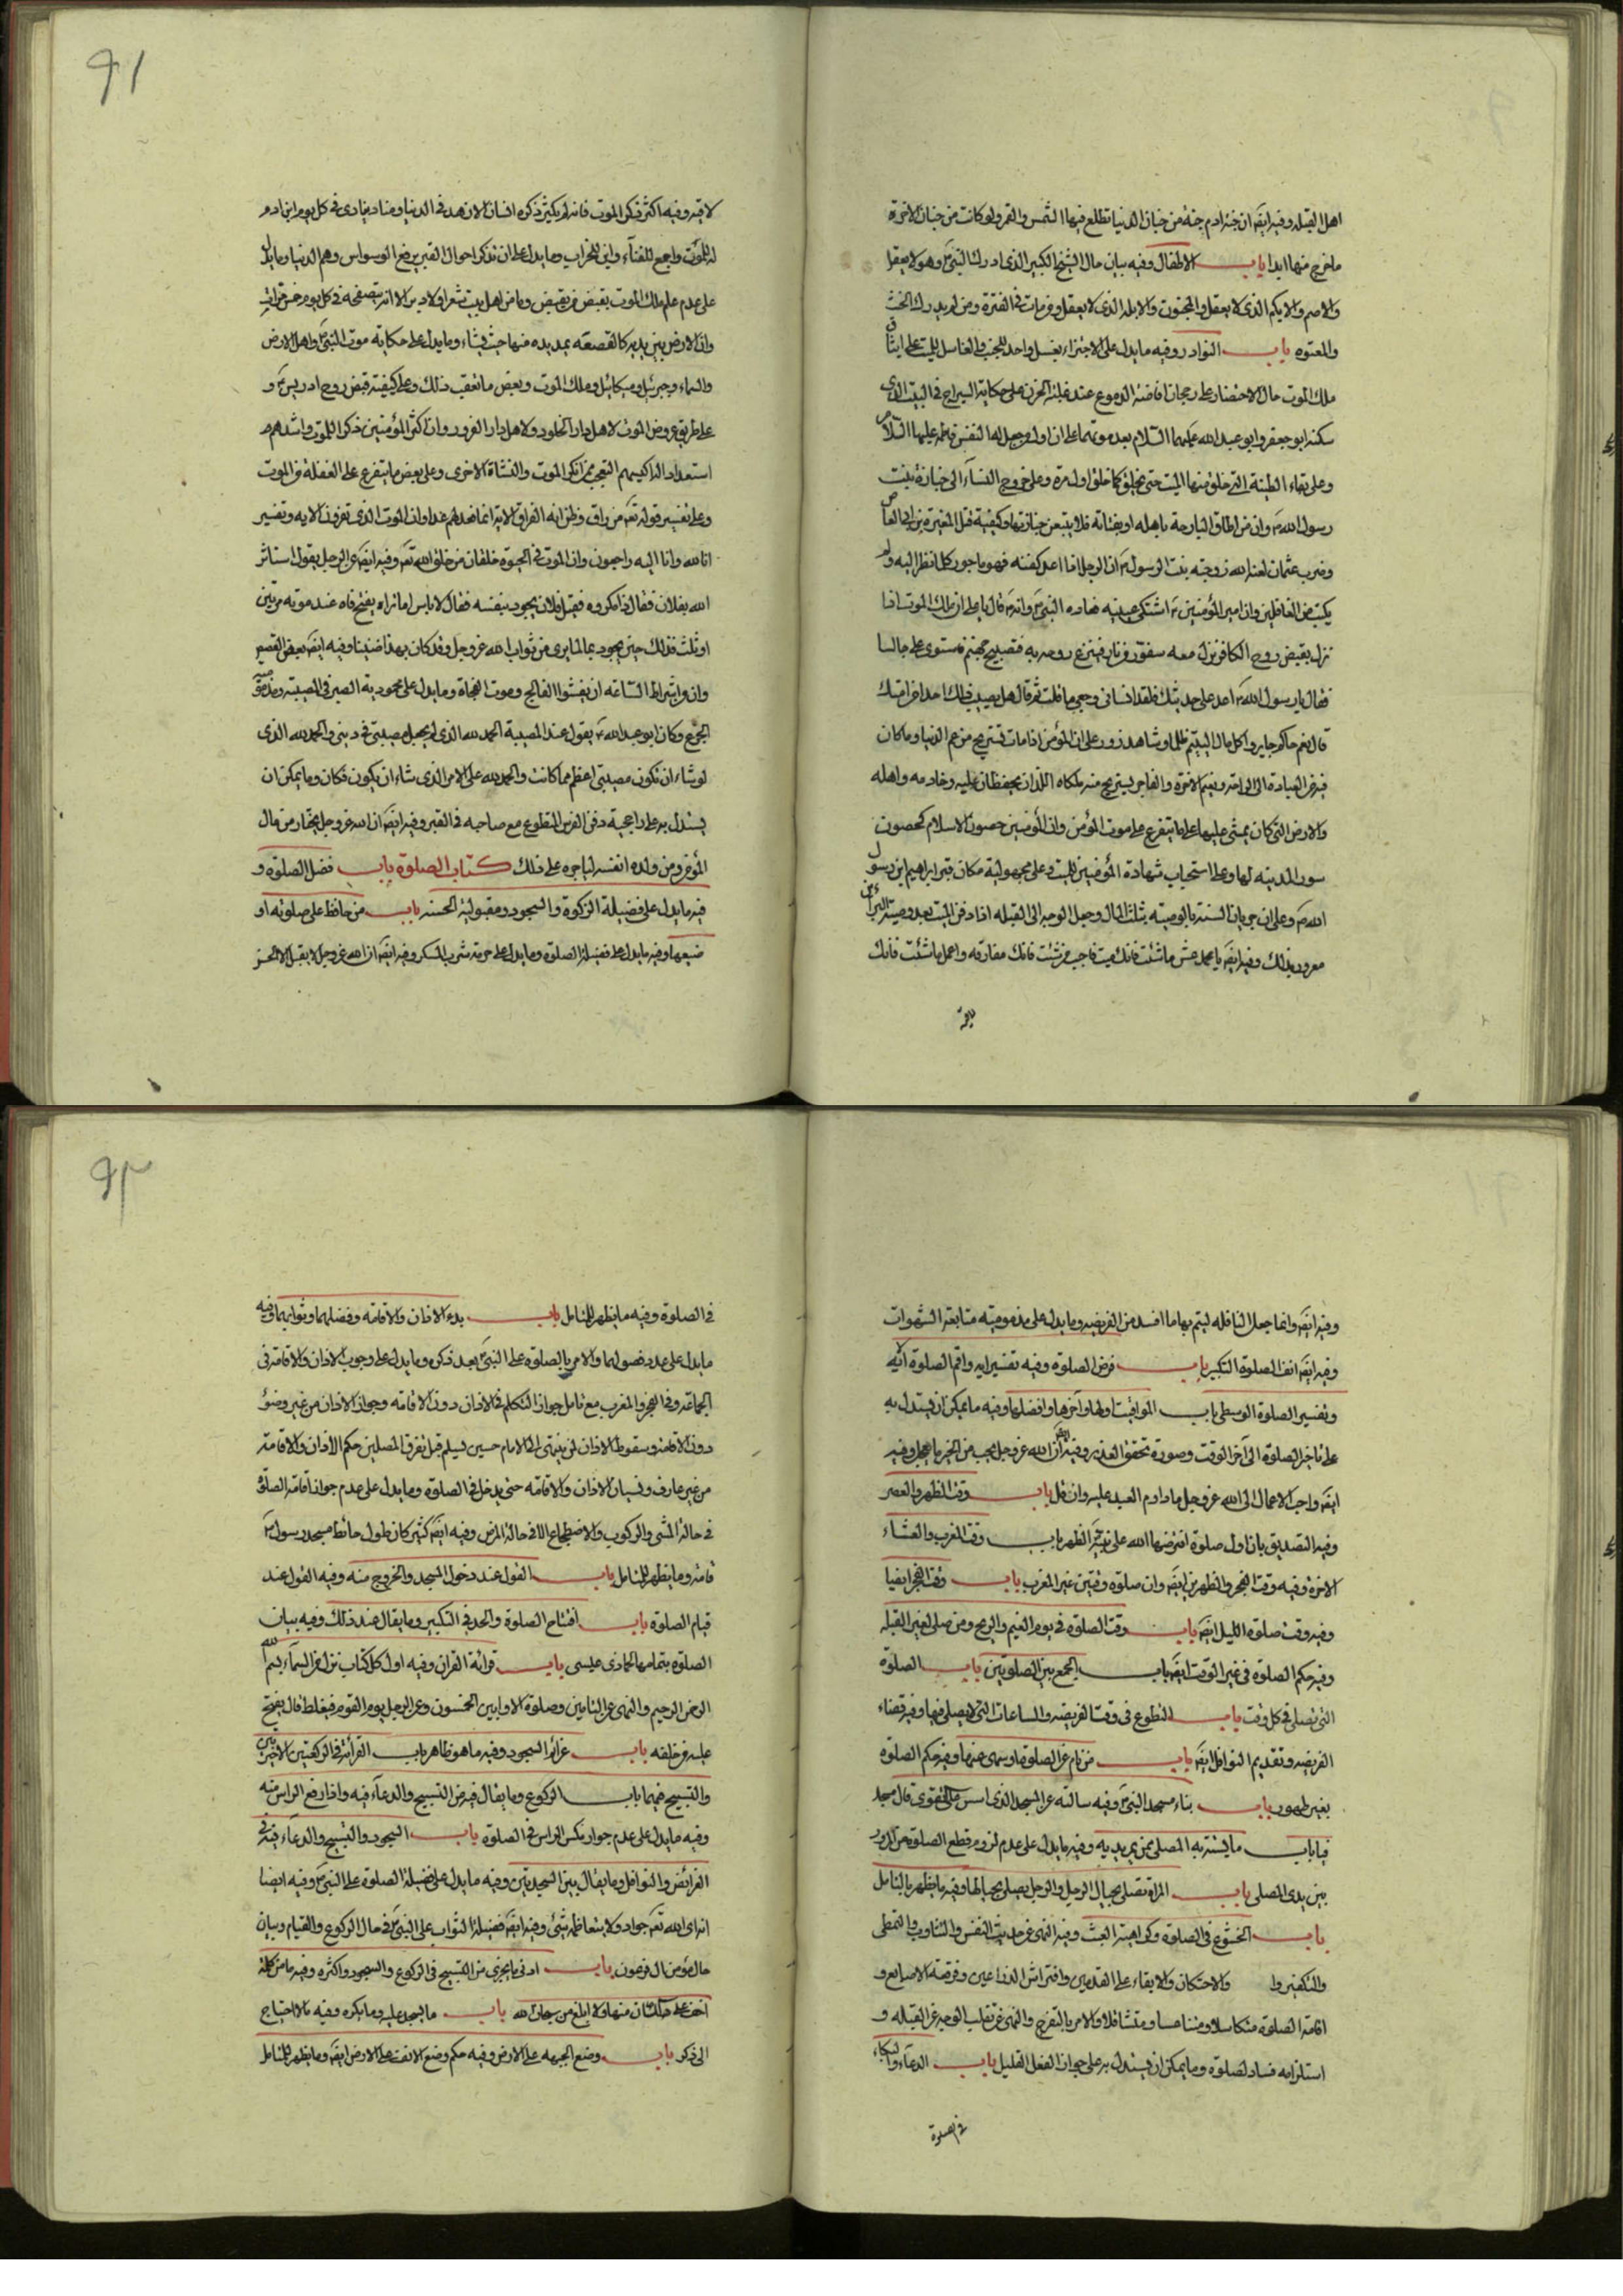 اهل القبله وفيه ايضَ ان جنة ادم جنة من جنان الدنيا تطلع فيها الشمس والقمر ولو كانت من جنان الاخرة
ما خرج منها ابدا باب الاطفال وفيه بيان حال الشيخ الكبير الذى ادرك النبىَ وهو لا يعقل
والاصم والابكم الذى لا يعقل والمجنون والابله الذى لا يعقل ومن مات فى الفترة ومن لم يدرك الحنث
والمعتوه باب النوادر وفيه ما يدل على الاجتزاء بغسل واحد للجنب
ملك الموت حال الاحتضار على رجحان افاضة الدموع عند غلبة الحزن على حكاية السراج فى البيت الذى
سكنه ابو جعفر وابو عبد الله عليهما السلام بعد موتهما على ان اول من جعل لها النعش فاطمه عليها السلام
وعلى بقاء الطينة التى خلق منها الميت حتى يخلق كما خلق اول مرة وعلى خروج النساء الى جنازة بنت
رسول اللهَ وان من اطاق البارحة باهله او بفتاته فلا يتبعن جنازتها وكيفية قتل المغيرة بن ابى العاص
وضرب عثمان لعنه الله زوجته بنت الرسولَ ان الرجل اذا اعد كفنه فهو ماجور كلما نظر اليه ولم
يكتب من الغافلين وان امير المؤمنينَ اشتكى عينيه فعاده النبىَ وانهَ قال يا على ان ملك الموت اذا
نزل بقبض روح الكافر نزل معه سفود من نار فينزع روحه به فتصيح جهنم فاستوى على جالسا
فقال يا رسول اللهَ اعد على حديثك فلقد انسانى وجعى ما قلت ثم قال هل يصيب ذلك احدا من امتك
قال نعم حاكم جاير واكل مال اليتيم ظلما وشاهد زور على ان المؤمن اذا مات تستريح من هم الدنيا وما كان
فيه من العبادة الى الراحة ونعيم الاخرة والفاجر يستريح منه ملكاه اللذان يحفظان عليه وخادمه واهله
والارض التى كان يمشى عليها على ما يتفرع على موت المؤمن وان المؤمنين حصون الاسلام كحصون
سور المدينه لها وعلى استحباب شهادة المؤمنين للميت وعلى مجهولية مكان قبر ابراهيم ابن رسول
اللهَ وعلى ان جريان السنة بالوصيته بثلث المال وجعل الوجه الى القبله اذا دفن الميت بعد وصيته البراء بن
معرور بذلك وفيه ايضَ يا محمد عش ما شئت فانك ميت فاحبب من شئت فانك مفارقه واعمل ما شئت فانك
لاقيه
٩١
لاقيه وفيه اكثر ذكر الموت فانه لم يكثر ذكره انسان الا زهد فى الدنيا ومناد ينادى فى كل يوم ابن ادم
لد للموت واجمع للفناء وابن للخراب وما يدل على ان تذكر احوال القبر يرفع الوسواس وهم الدنيا وما يدل
على عدم علم ملك الموت بقبض من يقبض وما من اهل بيت شعر او لا وبر الا انه يتصفحه فى كل يوم خمس مرات
وان الارض بين يديه كالقصعة يمد يده منها حيث يشاء وما يدل على حكاية موت النبىَ واهل الارض
والسماء وجبرئيل وميكائيل وملك الموت وبعض ما تعقب ذلك وعلى كيفية قبض روح ادريسَ و
على طريق عروض الموت لاهل دار الخلود ولاهل دار الغرور وان اكثر المؤمنين ذكر الموت واشدهم
استعدادا له اكيسهم التعجب ممن انكر الموت والنشاة الاخرى وعلى بعض ما يتفرع على الغفلة من الموت
وعلى تفسير قوله تعَ من راق وظن انه الفراق الاية انما نعد لهم عدا وان الموت الذى تفرون الايه وتفسير
انا لله وانا اليه راجعون وان الموت فى الحيوة خلقان من خلق الله تعَ وفيه ايضَ عن الرجل يقول استاثر
الله بفلان فقال ذا مكروه فقيل فلان يجود بنفسه فقال لا باس اما تراه يفتح فاه عند موته مرتين
او ثلث فذلك حين يجود بها لما يرى من ثواب الله عز وجل وقد كان بهذا ضنينا وفيه ايضَ بعض القصص
وان من اشراط الساعة ان يفشوا الفالج وموت الفجاة وما يدل على محمودية الصبر فى المصيبة ومذمومية
الجزع وكان ابو عبد اللهَ يقول عند المصيبة الحمد لله الذى لم يجعل مصيبتى فى دينى والحمد لله الذى
لو شاء ان تكون مصيبتى اعظم مما كانت والحمد لله على الامر الذى شاء ان يكون فكان وما يمكن ان
يستدل به على راجحية دفن القرن المقطوع مع صاحبه فى القبر وفيه ايضَ ان الله عز وجل يختار من مال
المؤمن ومن ولده انفسه لياجره على ذلك كتاب الصلوة باب فضل الصلوة و
فيه ما يدل على فضيلة الزكوة والسجود ومقبولية الحسنه باب من حافظ على صلوته او
ضيعها وفيه ما يدل على فضيلة الصلوة وما يدل على حرمة شرب المسكر وفيه ايضَ ان الله عز وجل لا يقبل الا الحسن
وفيه ايضَ وانما جعل النافله ليتم بها ما افسد من الفريضه وما يدل على مذمومية متابعة الشهوات
وفيه ايضَ انف الصلوة التكبير باب فرض الصلوة وفيه تفسير ايه واقم الصلوة الايه
وتفسير الصلوة الوسطى باب المواقيت اولها وآخرها وافضلها وفيه ما يمكن ان يستدل به
على تاخير الصلوة الى آخر الوقت وصورة تحقق العذر وفيه ايضَ ان الله عز وجل يحب من الخير ما يعجل وفيه
ايضَ واحب الاعمال الى الله عز وجل ما داوم العبد عليه وان قل باب وقت الظهر والعصر
وفيه التصديق بان اول صلوة افترضها الله على نبيهَ الظهر باب وقت المغرب والعشاء
الاخرة وفيه وقت الفجر والظهرين ايضَ وان صلوة وقتين غير المغرب باب وقت الفجر ايضا
وفيه وقت صلوة الليل ايضَ باب وقت الصلوة فى يوم الغيم والريح ومن صلى لغير القبله
وفيه حكم الصلوة فى غير الوقت ايضَ باب الجمع بين الصلوتين باب الصلوة
التى تصلى فى كل وقت باب التطوع فى وقت الفريضه والساعات التى لا يصلى فيها وفيه قضاء
الفريضه وتقديم النوافل ايضَ باب من نام عن الصلوة او سهى عنها وفيه حكم الصلوة
بغير طهور باب بناء مسجد النبىَ وفيه سالته عن المسجد الذى اسس على التقوى قال مسجد
قبا باب ما يستتر به المصلى ممن يمر بين يديه وفيه ما يدل على عدم لزوم قطع الصلوة من المرور
بين يدى المصلى باب المراة تصلى بحيال الرجل والرجل يصلى بحيالها وفيه ما يظهر بالتامل
باب الخشوع فى الصلوة وكراهية العبث وفيه النهى عن حديث النفس والتثاوب والتمطى
والتكفير وا والاحتكان والاقعاء على القدمين وافتراش الذراعين وفرقعة الاصابع و
اقامة الصلوة متكاسلا ومتناعسا ومتثاقلا والامر بالتفرج والنهى عن تقليب الوجه عن القبله و
استلزامه فساد الصلوة وما يمكن ان يستدل به على جواز الفعل القليل باب الدعاء والبكاء
فى الصلوة
٩٢
فى الصلوة وفيه ما يظهر للمتامل باب بدء الاذان والاقامة وفضلهما وثوابهما وفيه
ما يدل على عدد فصولهما والامر بالصلوة على النبىَ بعد ذكره وما يدل على وجوب الاذان والاقامة فى
الجماعة وفى الفجر والمغرب مع تامل جواز التكلم فى الاذان دون الاقامه وجواز الاذان من غير وضوء
دون الاقامة وسقوط الاذان لمن ينتهى الى الامام حين يسلم قبل تفرق المصلين حكم الاذان والاقامة
من غير عارف ونسيان الاذان والاقامه حتى يدخل فى الصلوة وما يدل على عدم جواز اقامة الصلوة
فى حالة المشى والركوب والاضطجاع الا فى حالة المرض وفيه ايضَ كثير كان طول حائط مسجد رسولَ
قامة وما يظهر للمتامل باب القول عند دخول المسجد والخروج منه وفيه القول عند
قيام الصلوة باب افتتاح الصلوة والحد فى التكبير وما يقال عند ذلك وفيه بيان
الصلوة بتمامها لحماد بن عيسى باب قرائة القران وفيه اول كل كتاب نزل من السماء بسم الله
الرحمن الرحيم والنهى عن التامين وصلوة الاوابين الخمسون وعن الرجل يوم القوم فيغلط قال يفتح
عليه من خلفه باب عزائم السجود وفيه ما هو ظاهر باب القرائة فى الركعتين الاخيرتين
والتسبيح فيهما باب الركوع وما يقال فيه من التسبيح والدعاء فيه واذا رفع الراس منه
وفيه ما يدل على عدم جواز نكس الراس فى الصلوة باب السجود والتسبيح والدعاء فيه فى
الفرائض والنوافل وما يقال بين السجدتين وفيه ما يدل على فضيلة الصلوة على النبىَ وفيه ايضا
ان الله تعَ جواد ولا يتعاظمه شئ وفيه ايضَ فضيلة الثواب على النبىَ فى حال الركوع والقيام وبيان
حال مؤمن ال فرعون باب ادنى ما يجزى من التسبيح فى الركوع والسجود واكثره وفيه ما من كلمة
اخف على اللسان منها ولا ابلغ من سبحان الله باب ما يسجد عليه وما يكره وفيه ما لا احتياج
الى ذكر باب وضع الجبهه على الارض وفيه حكم وضع الانف على الارض ايضَ وما يظهر للمتامل